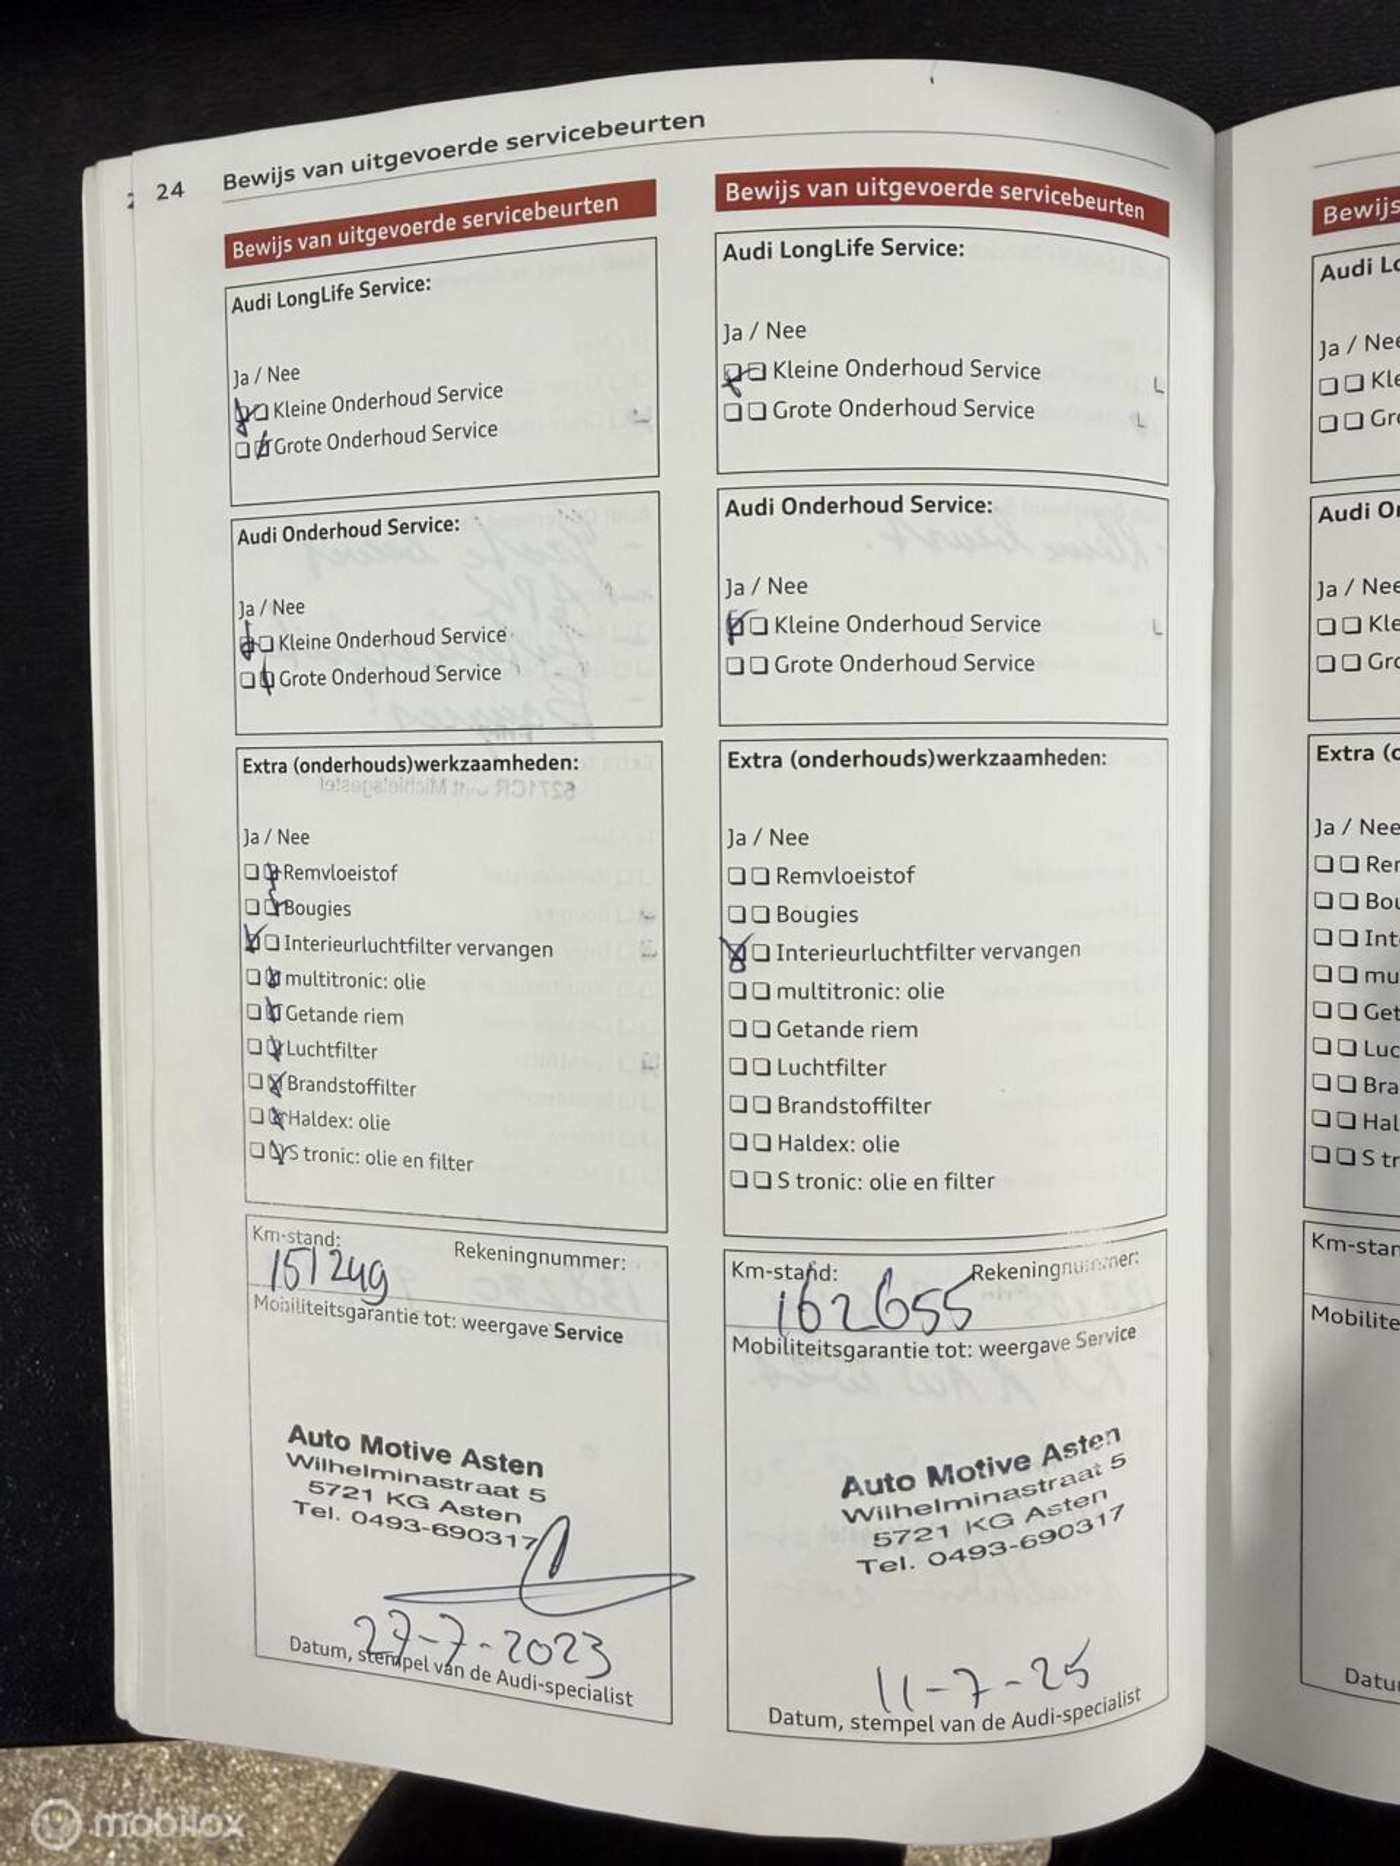 24
Bewijs van uitgevoerde servicebeurten
Bewijs van uitgevoerde servicebeurten
Audi LongLife Service:
Ja / Nee
Kleine Onderhoud Service
Grote Onderhoud Service
Audi Onderhoud Service:
Ja / Nee
Kleine Onderhoud Service
Grote Onderhoud Service
Extra (onderhouds)werkzaamheden:
Ja / Nee
Remvloeistof
Bougies
Interieurluchtfilter vervangen
multitronic: olie
Getande riem
Luchtfilter
Brandstoffilter
Haldex: olie
S tronic: olie en filter
Km-stand:
Rekeningnummer:
151249
Mobiliteitsgarantie tot: weergave Service
Auto Motive Asten
Wilhelminastraat 5
5721 KG Asten
Tel. 0493-690317
27-7-2023
Datum, stempel van de Audi-specialist
Bewijs van uitgevoerde servicebeurten
Audi LongLife Service:
Ja / Nee
Kleine Onderhoud Service
Grote Onderhoud Service
Audi Onderhoud Service:
Ja / Nee
Kleine Onderhoud Service
Grote Onderhoud Service
Extra (onderhouds)werkzaamheden:
Ja / Nee
Remvloeistof
Bougies
Interieurluchtfilter vervangen
multitronic: olie
Getande riem
Luchtfilter
Brandstoffilter
Haldex: olie
S tronic: olie en filter
Km-stand:
Rekeningnummer:
162655
Mobiliteitsgarantie tot: weergave Service
Auto Motive Asten
Wilhelminastraat 5
5721 KG Asten
Tel. 0493-690317
11-7-25
Datum, stempel van de Audi-specialist
Bewijs
Audi Lo
Ja / Nee
Kle
Gro
Audi On
Ja / Nee
Kle
Gro
Extra (o
Ja / Nee
Rem
Bou
Int
mu
Get
Luc
Bra
Hal
S tr
Km-stan
Mobilite
Datu
mobilox